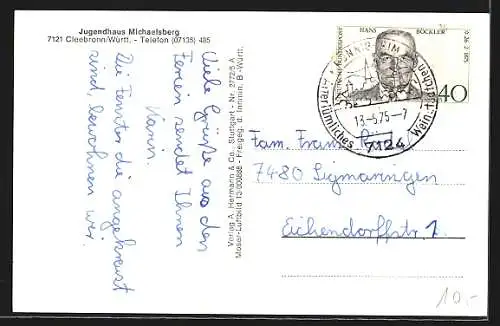 Jugendhaus Michaelsberg
7121 Cleebronn/Württ. - Telefon (07135) 485
Viele Grüße aus den
Ferien sendet Ihnen
Karin.
Die Fenster die angekreuzt
sind, bewohnen wir.
Verlag A. Hermann & Co., Stuttgart - Nr. 2772/5 A
Moser-Luftbild - Freigeg. d. Innmin. B.-Württ.
HANS BÖCKLER
DEUTSCHE BUNDESPOST
40
13.-5.75.-7
7124
altertümliches Wein-
Fam. Franz
7480 Sigmaringen
Eichendorffstr. 1
10,-